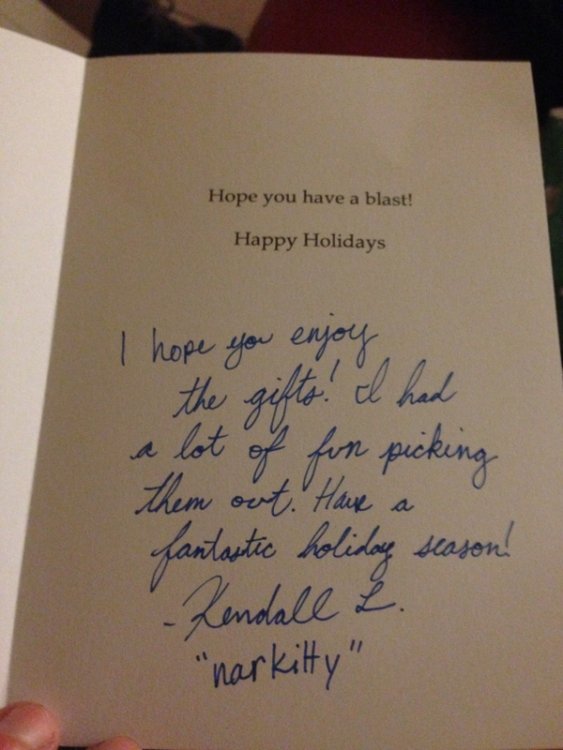 Hope you have a blast!
Happy Holidays
I hope you enjoy
the gifts! I had
a lot of fun picking
them out. Have a
fantastic holiday season!
- Kendall L.
"narkitty"